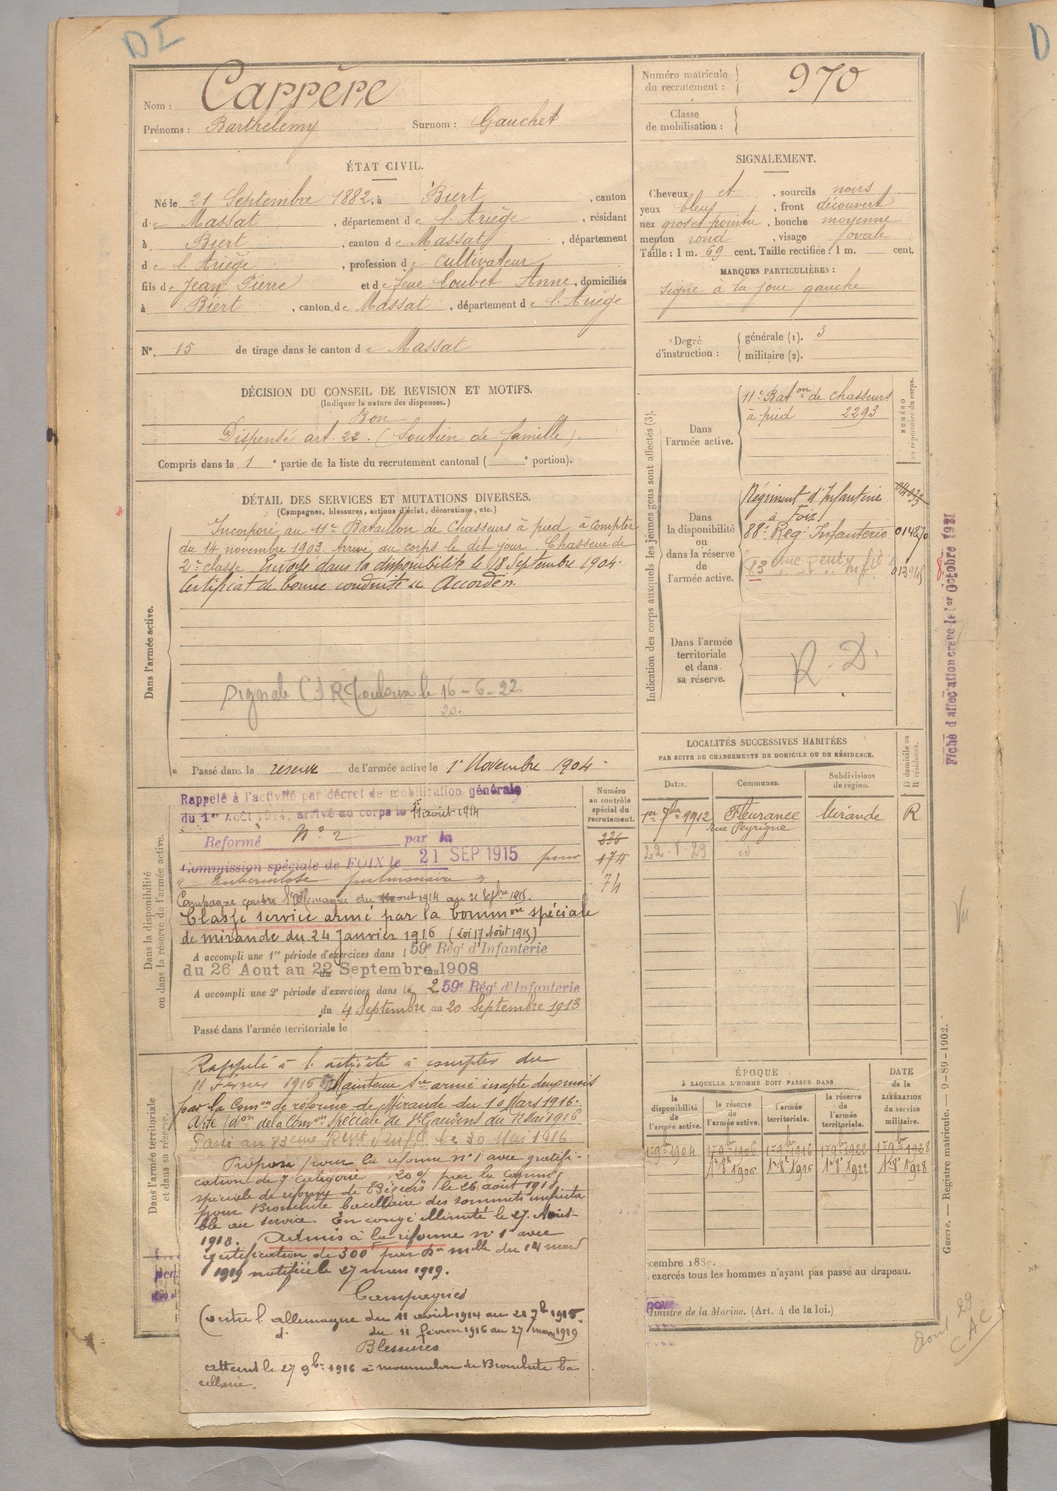 DI
Nom : Carrère
Prénoms : Barthélemy Surnom : Gauchet
ÉTAT CIVIL.
Né le 21 Septembre 1882, à Biert , canton
de Massat , département de l'Ariège , résidant
à Biert , canton de Massat , département
de l'Ariège , profession de cultivateur
fils de Jean Pierre et de feue Loubet Anne , domiciliés
à Biert , canton de Massat , département de l'Ariège
N° 15 de tirage dans le canton de Massat
DÉCISION DU CONSEIL DE REVISION ET MOTIFS.
(Indiquer la nature des dispenses.)
Bon
Dispensé art. 22. (Soutien de famille).
Compris dans la 1e partie de la liste du recrutement cantonal ( e portion).
DÉTAIL DES SERVICES ET MUTATIONS DIVERSES.
(Campagnes, blessures, actions d'éclat, décorations, etc.)
Dans l'armée active.
Incorporé au 11e Bataillon de Chasseurs à pied à compter
du 14 novembre 1903. Arrivé au corps le dit jour. Chasseur de
2e classe. Envoyé dans la disponibilité le 18 Septembre 1904.
Certificat de bonne conduite Accordé.
Signalé Toulouse le 16-6-22.
20.
Passé dans la réserve de l'armée active le 1er Novembre 1904
Dans la disponibilité
ou dans la réserve de l'armée active.
Numéro
au contrôle
spécial du
recrutement.
336
174
74
Rappelé à l'activité par décret de mobilisation générale
du 1er Août 1914, arrivé au corps le 11 août 1914
Réformé N° 2 par la
Commission spéciale de FOIX le 21 SEP 1915 pour
tuberculose pulmonaire
Campagne contre l'Allemagne du 11 août 1914 au 21 Septbre 1915.
Classé service armé par la Common spéciale
de mirande du 24 Janvier 1916 (Loi 17 Août 1915)
A accompli une 1re période d'exercices dans l 59e Régt d'Infanterie
du 26 Aout au 22 Septembre 1908
A accompli une 2e période d'exercices dans le 259e Régt d'Infanterie
du 4 Septembre au 20 Septembre 1913
Passé dans l'armée territoriale le
Dans l'armée territoriale
et dans sa réserve.
Rappelé à l'activité à compter du
11 Février 1916 Maintenu Sce armé inapte deux mois
par la Comon de réforme de Mirande du 10 Mars 1916.
de la Comon spéciale de St Gaudens du 12 Mai 1916
Passé au 83eme Regt d'Inf le 30 Mai 1916
Proposé pour la réforme n° 1 avec gratifi-
cation de 7e catégorie 20% par la Comon
spéciale de réforme de Béziers le 26 août 1918
pour Bronchite bacillaire des sommets
au service. En congé illimité le 27 Août
1918. Admis à la réforme n° 1 avec
gratification de 300f par Don mlle du 14 mars
1919 notifiée le 27 mars 1919.
Campagnes
Contre l'allemagne du 11 août 1914 au 21 7bre 1915.
d° du 11 février 1916 au 27 mars 1919
Blessures
atteint le 27 9bre 1916 à de Bronchite ba-
cillaire.
Numéro matricule
du recrutement : 970
Classe
de mobilisation :
SIGNALEMENT.
Cheveux et , sourcils noirs
yeux bleus , front découvert
nez gros et pointu , bouche moyenne
menton rond , visage ovale
Taille : 1 m. 69 cent. Taille rectifiée : 1 m. cent.
MARQUES PARTICULIÈRES :
Signe à la joue gauche
Degré
d'instruction :
générale (1). 3
militaire (2).
Indication des corps auxquels les jeunes gens sont affectés (3).
NUMÉRO
au répertoire du corps.
Dans
l'armée active.
11e Baton de Chasseurs
à pied 2293
Dans
la disponibilité
ou
dans la réserve
de
l'armée active.
Régiment d'Infanterie
à Foix
88e Régt Infanterie
83
Dans l'armée
territoriale
et dans
sa réserve.
R. D.
Fiche d'affectation créée le 1er Octobre 1921
LOCALITÉS SUCCESSIVES HABITÉES
PAR SUITE DE CHANGEMENTS DE DOMICILE OU DE RÉSIDENCE.
Dates. Communes. Subdivisions
de région. D domicile ou
R résidence.
1er 7bre 1912 Fleurance Mirande R
rue Peyrigne
22-1-29 id
ÉPOQUE
À LAQUELLE L'HOMME DOIT PASSER DANS
DATE
de la
LIBÉRATION
du service
militaire.
la
disponibilité
de
l'armée active.
la réserve
de
l'armée active.
l'armée
territoriale.
la réserve
de
l'armée
territoriale.
1er 9bre 1904 1er 9bre 1906 1er 9bre 1916 1er 9bre 1922 1er 9bre 1928
1er 8bre 1906 1er 8bre 1916 1er 8bre 1922 1er 8bre 1928
exercés tous les hommes n'ayant pas passé au drapeau.
Ministre de la Marine. (Art. 4 de la loi.)
Guerre. — Registre matricule. — 9-89-1902.
Vu
Août 29
CAC
D